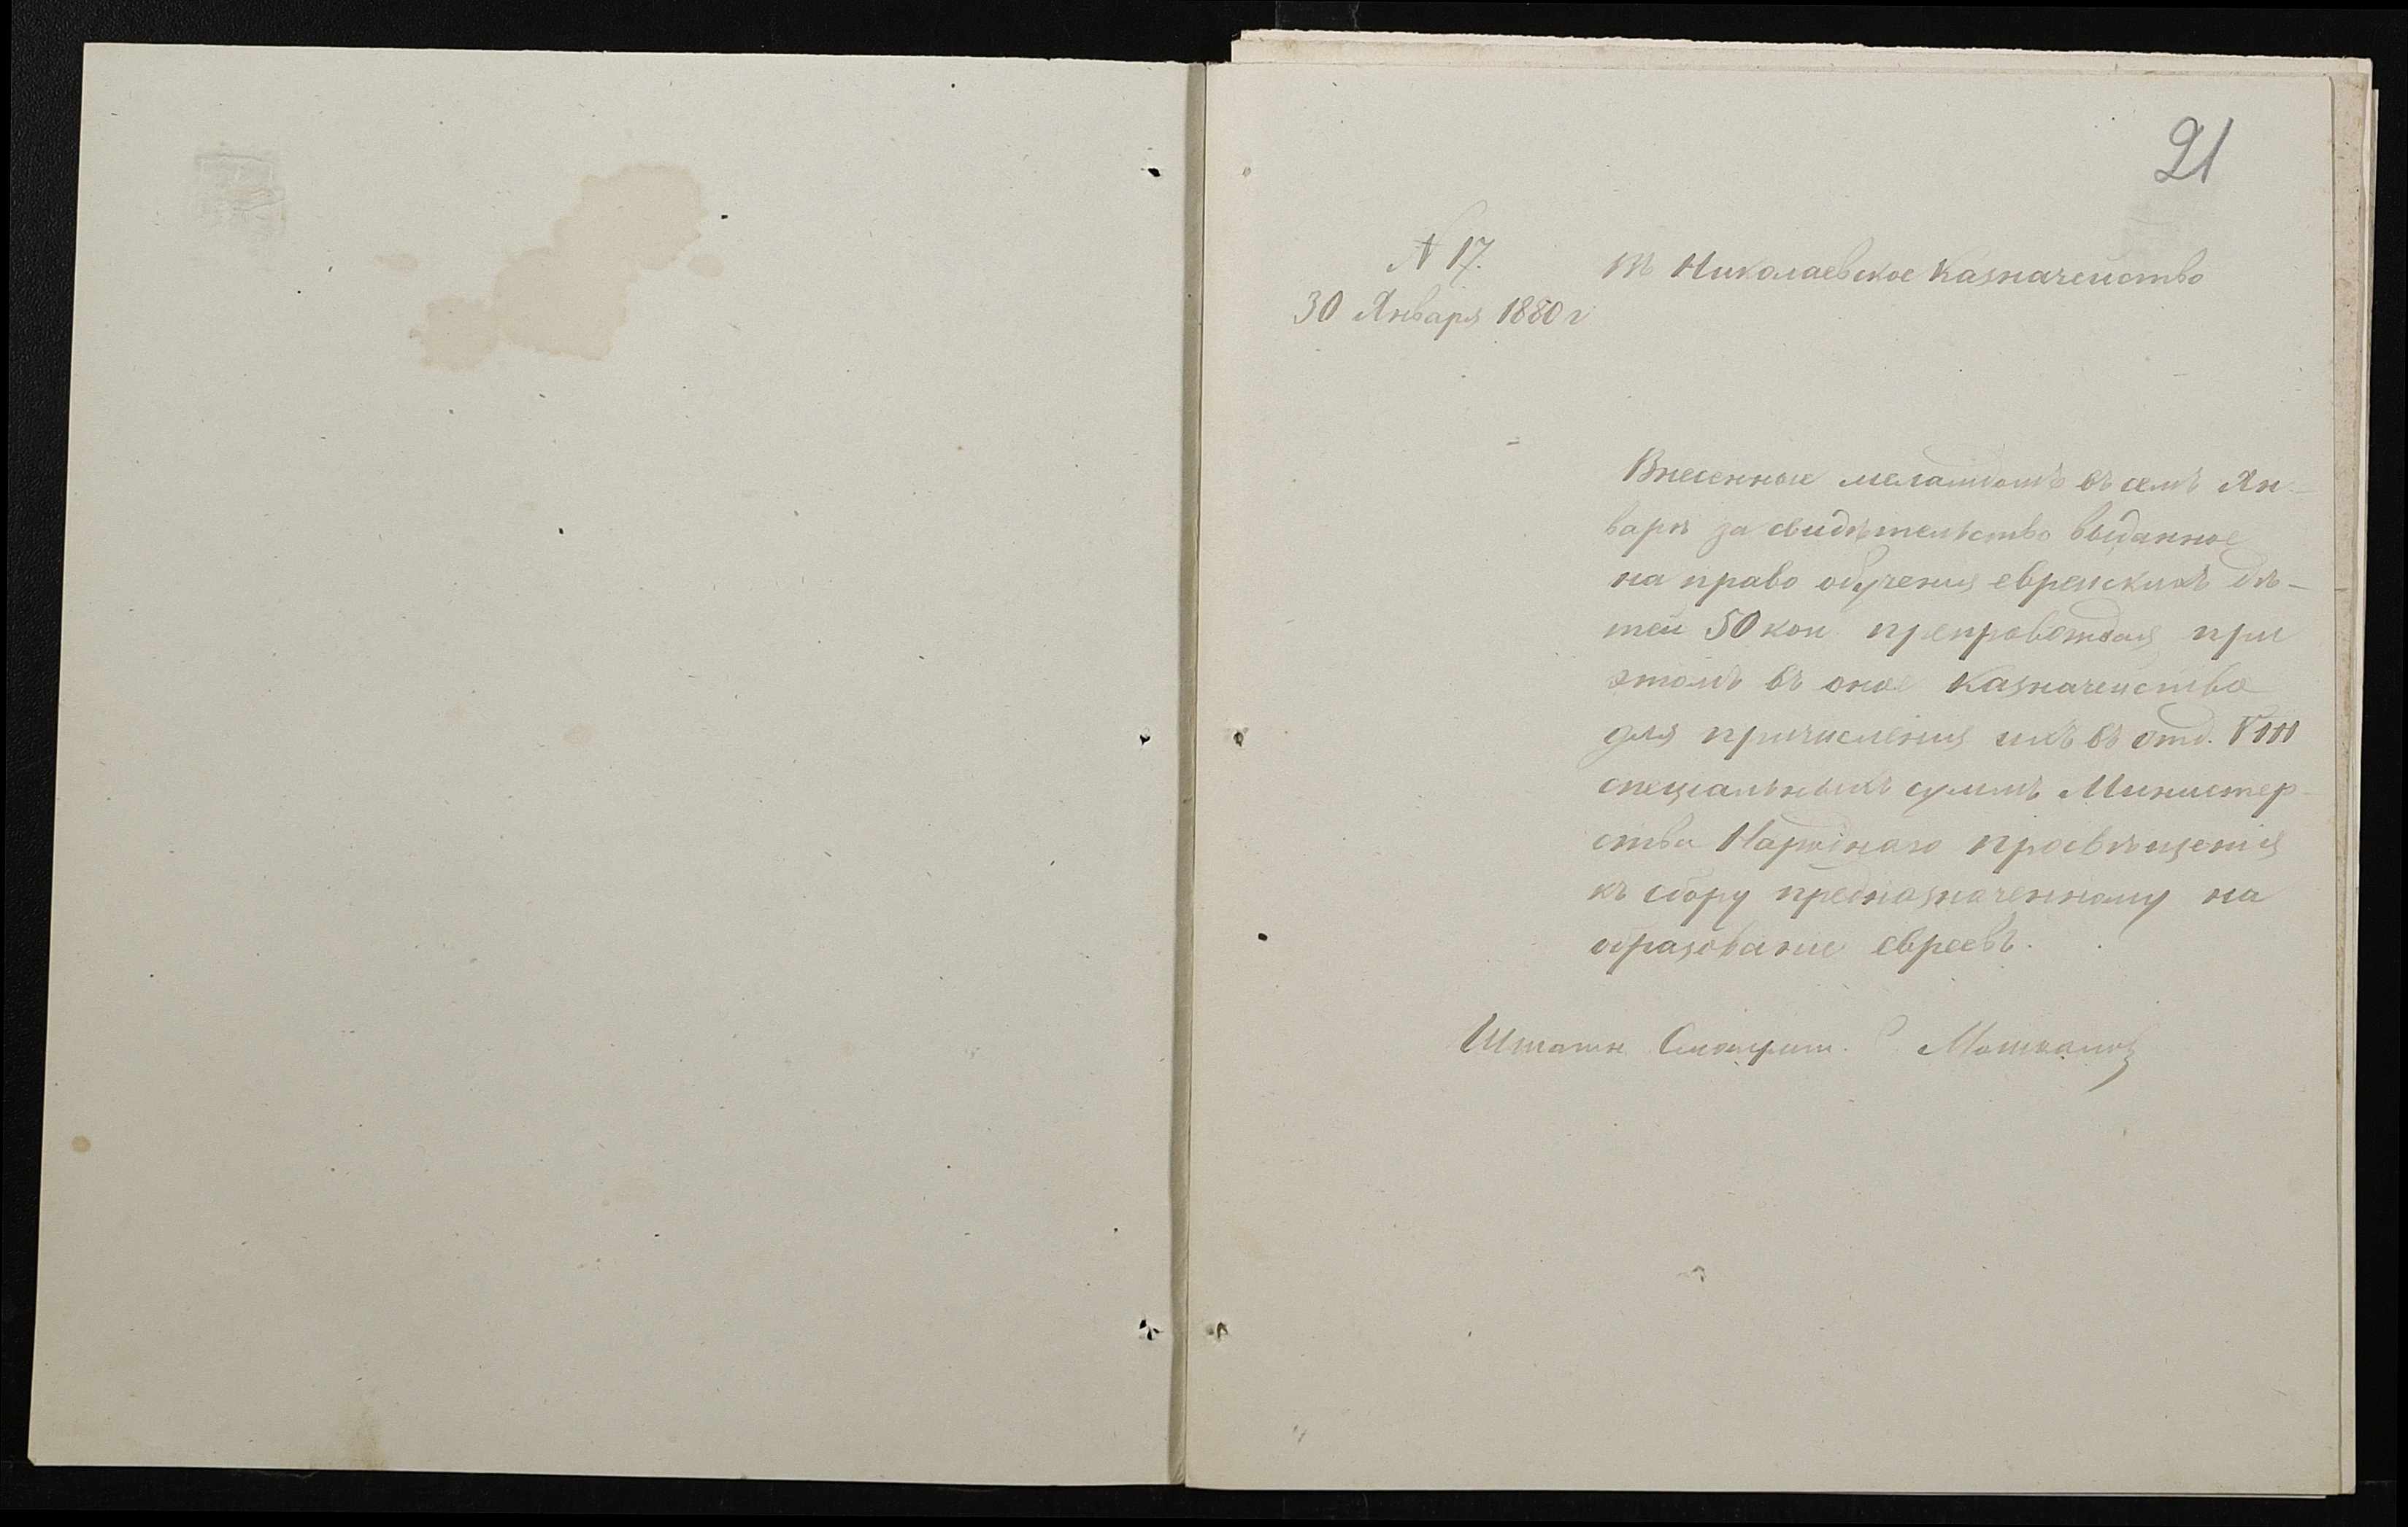 21
N 17.
30 Января 1880 г
Въ Николаевское Казначейство
Внесенные меламдомъ въ семъ Ян-
варѣ за свидѣтельство выданное
на право обученія еврейскихъ дѣ-
тей 50 коп препровождая при
этомъ въ оное Казначейство
для причисленія ихъ въ отд. VIII
спеціальныхъ суммъ Министер-
ства Народнаго просвѣщенія
къ сбору предназначенному на
образованіе евреевъ.
Штатн Смотрит.